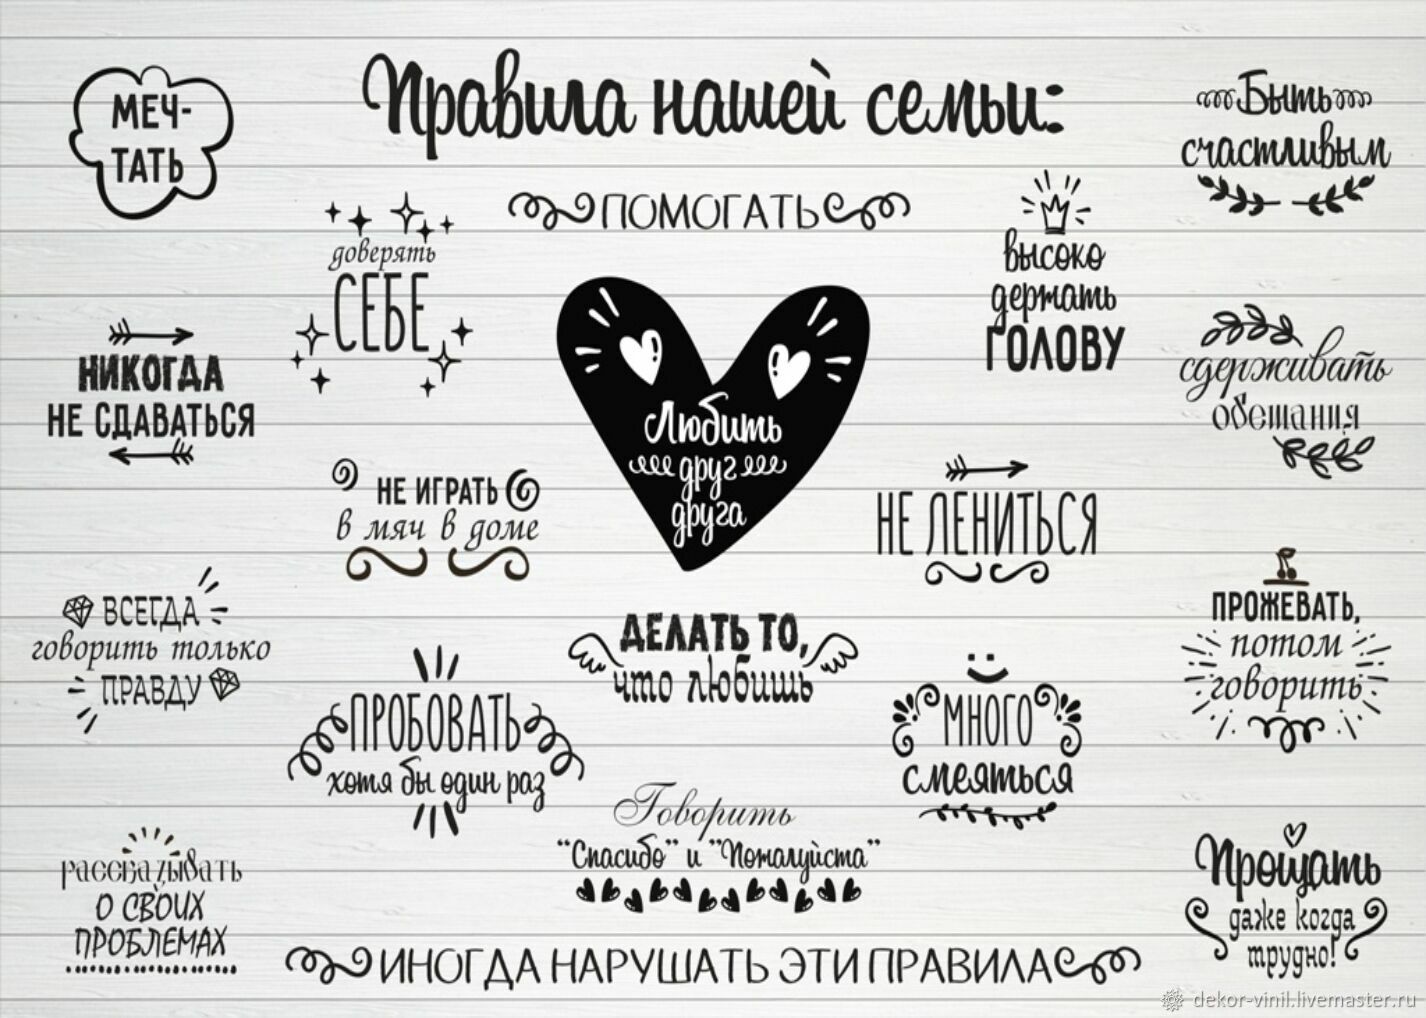 Правила нашей семьи:
МЕЧ-
ТАТЬ
Быть
счастливым
ПОМОГАТЬ
доверять
СЕБЕ
высоко
держать
ГОЛОВУ
НИКОГДА
НЕ СДАВАТЬСЯ
Любить
друг
друга
сдерживать
обещания
НЕ ИГРАТЬ
в мяч в доме
НЕ ЛЕНИТЬСЯ
ВСЕГДА
говорить только
ПРАВДУ
ДЕЛАТЬ ТО,
что любишь
ПРОЖЕВАТЬ,
потом
говорить
ПРОБОВАТЬ
хотя бы один раз
МНОГО
смеяться
Говорить
"Спасибо" и "Пожалуйста"
рассказывать
О СВОИХ
ПРОБЛЕМАХ
Прощать
даже когда
трудно!
ИНОГДА НАРУШАТЬ ЭТИ ПРАВИЛА
dekor-vinil.livemaster.ru